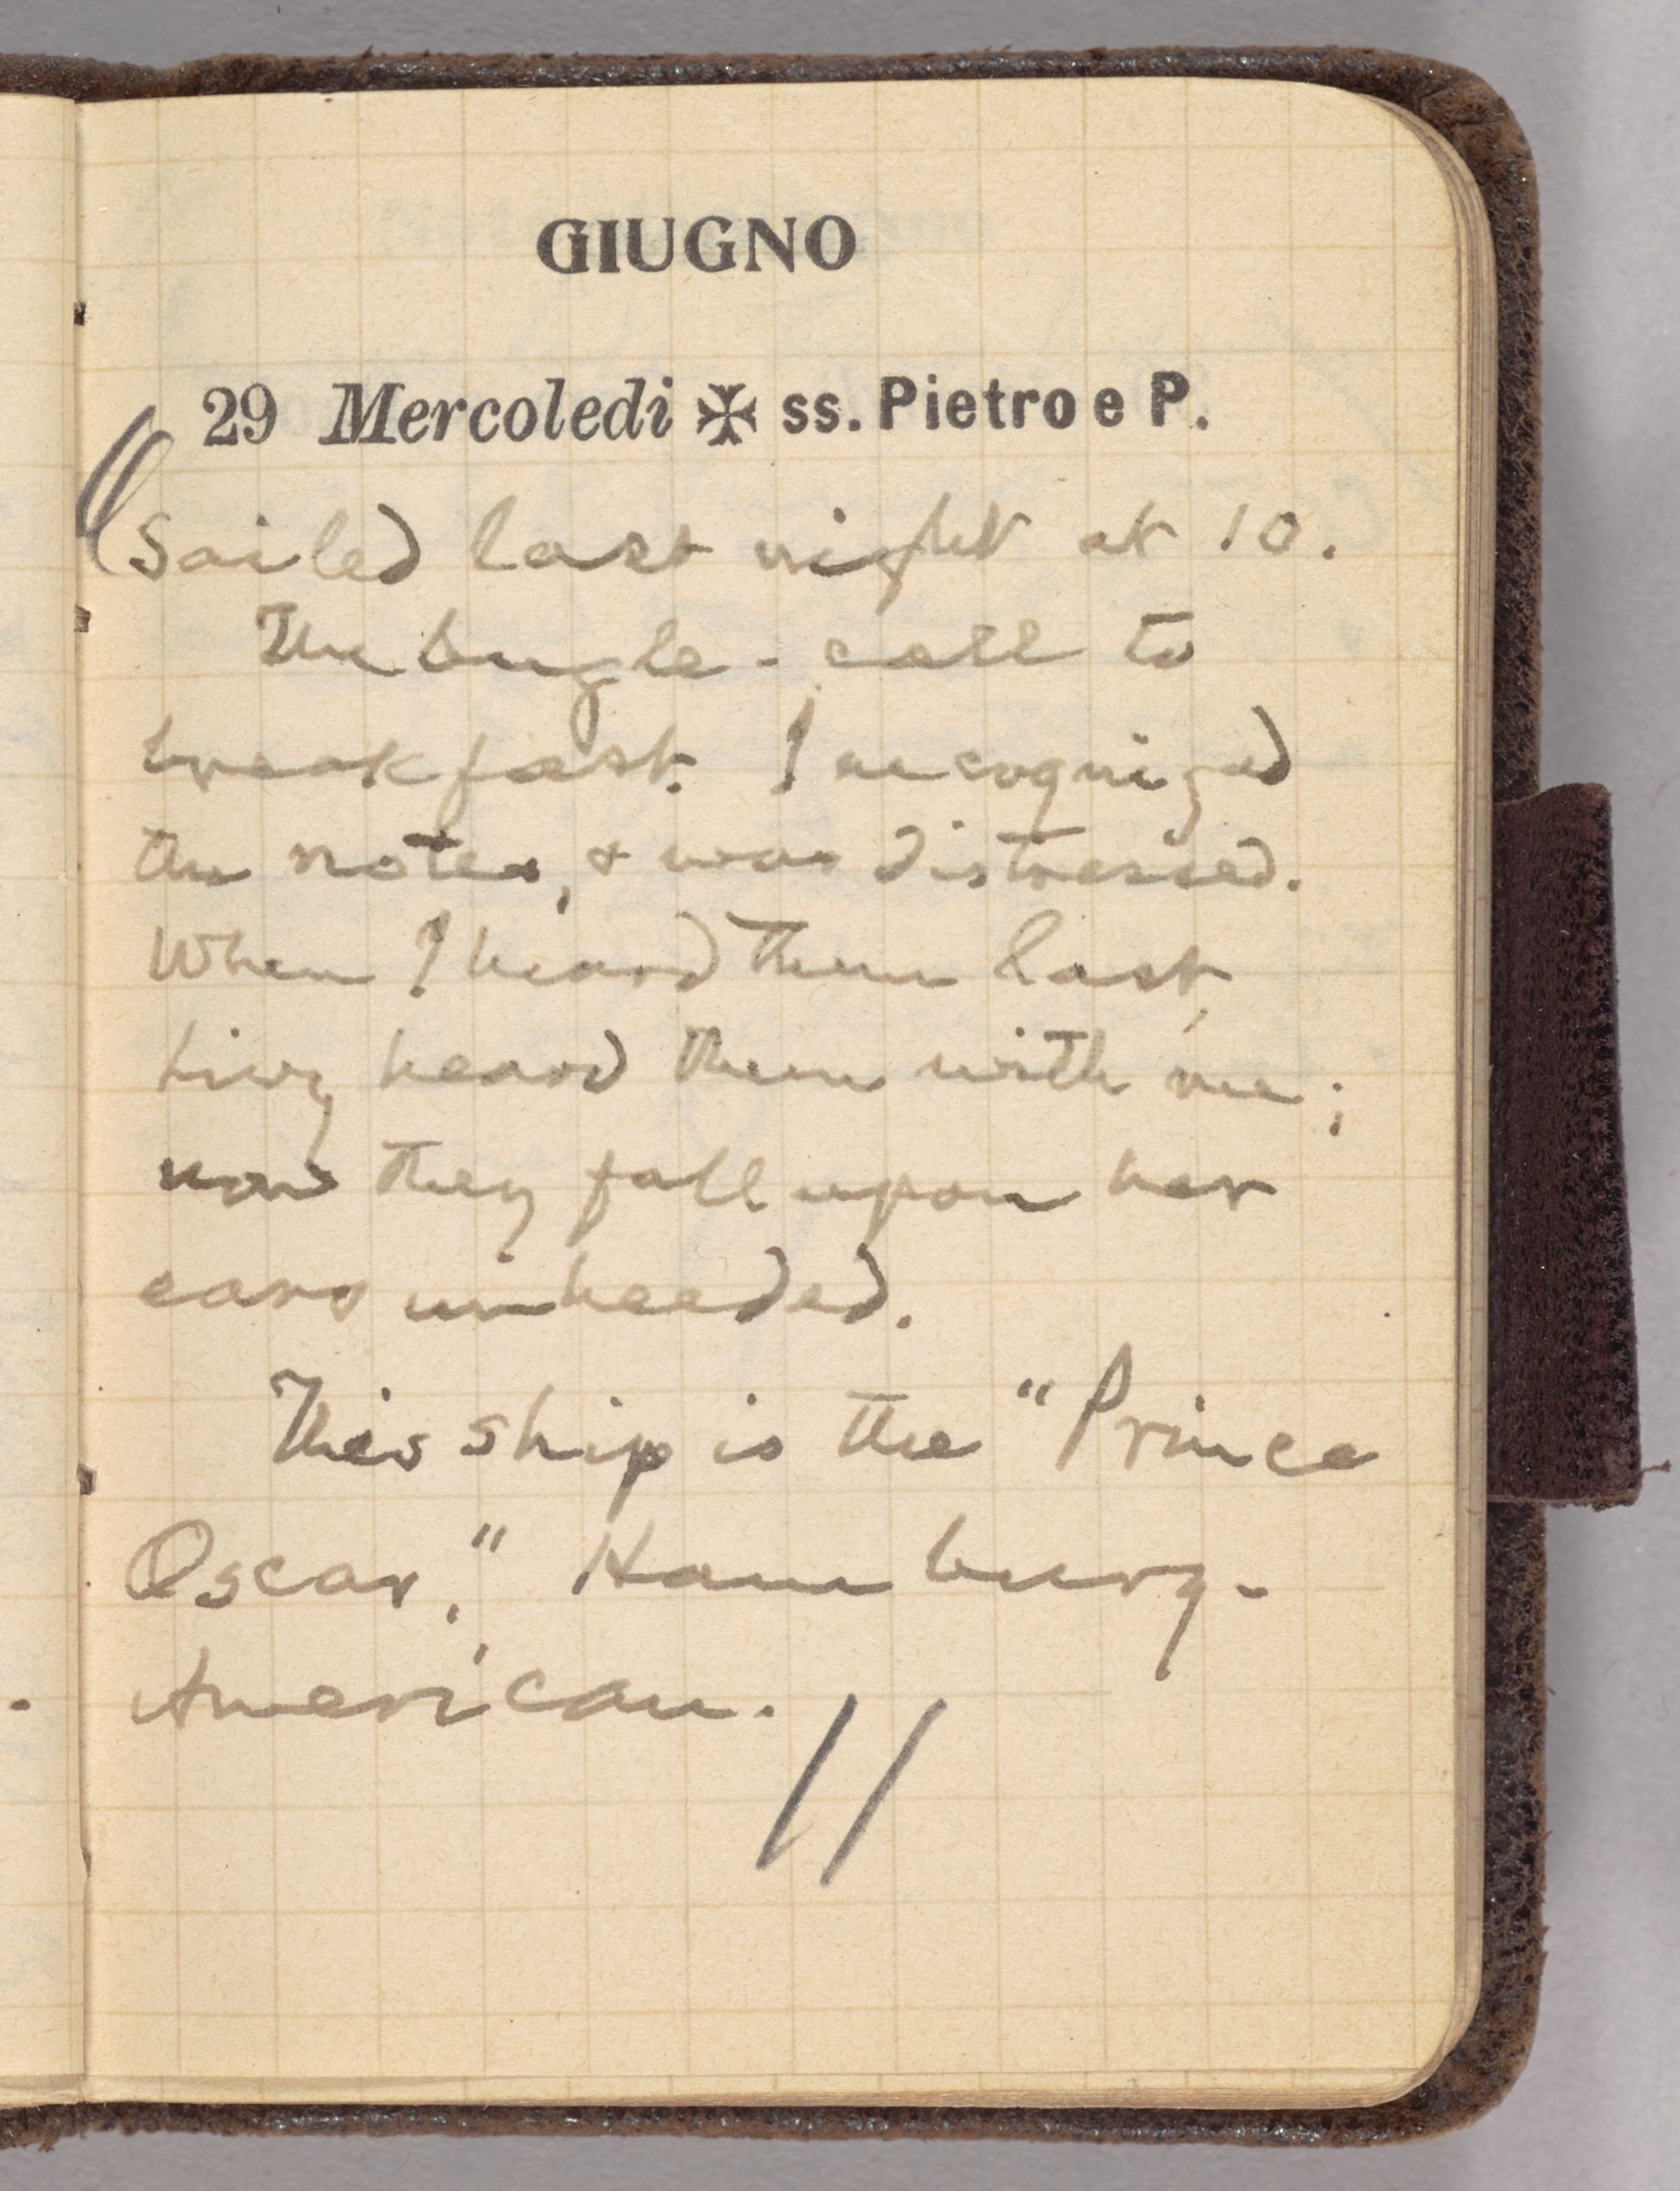 GIUGNO
29 Mercoledi ✠ ss. Pietro e P.
Sailed last night at 10.
The bugle-call to
breakfast. I recognized
the notes, & was distressed.
When I heard them last,
Livy heard them with me;
now they fall upon her
ears unheeded.
This ship is the "Prince
Oscar," Hamburg-
American.